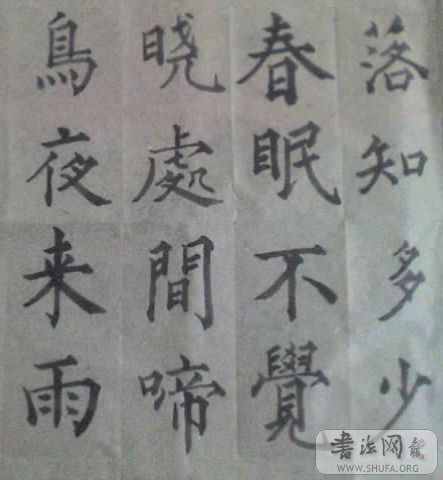 落知多少
春眠不覺
晓處間啼
鳥夜来雨
書法网
WWW.SHUFA.ORG